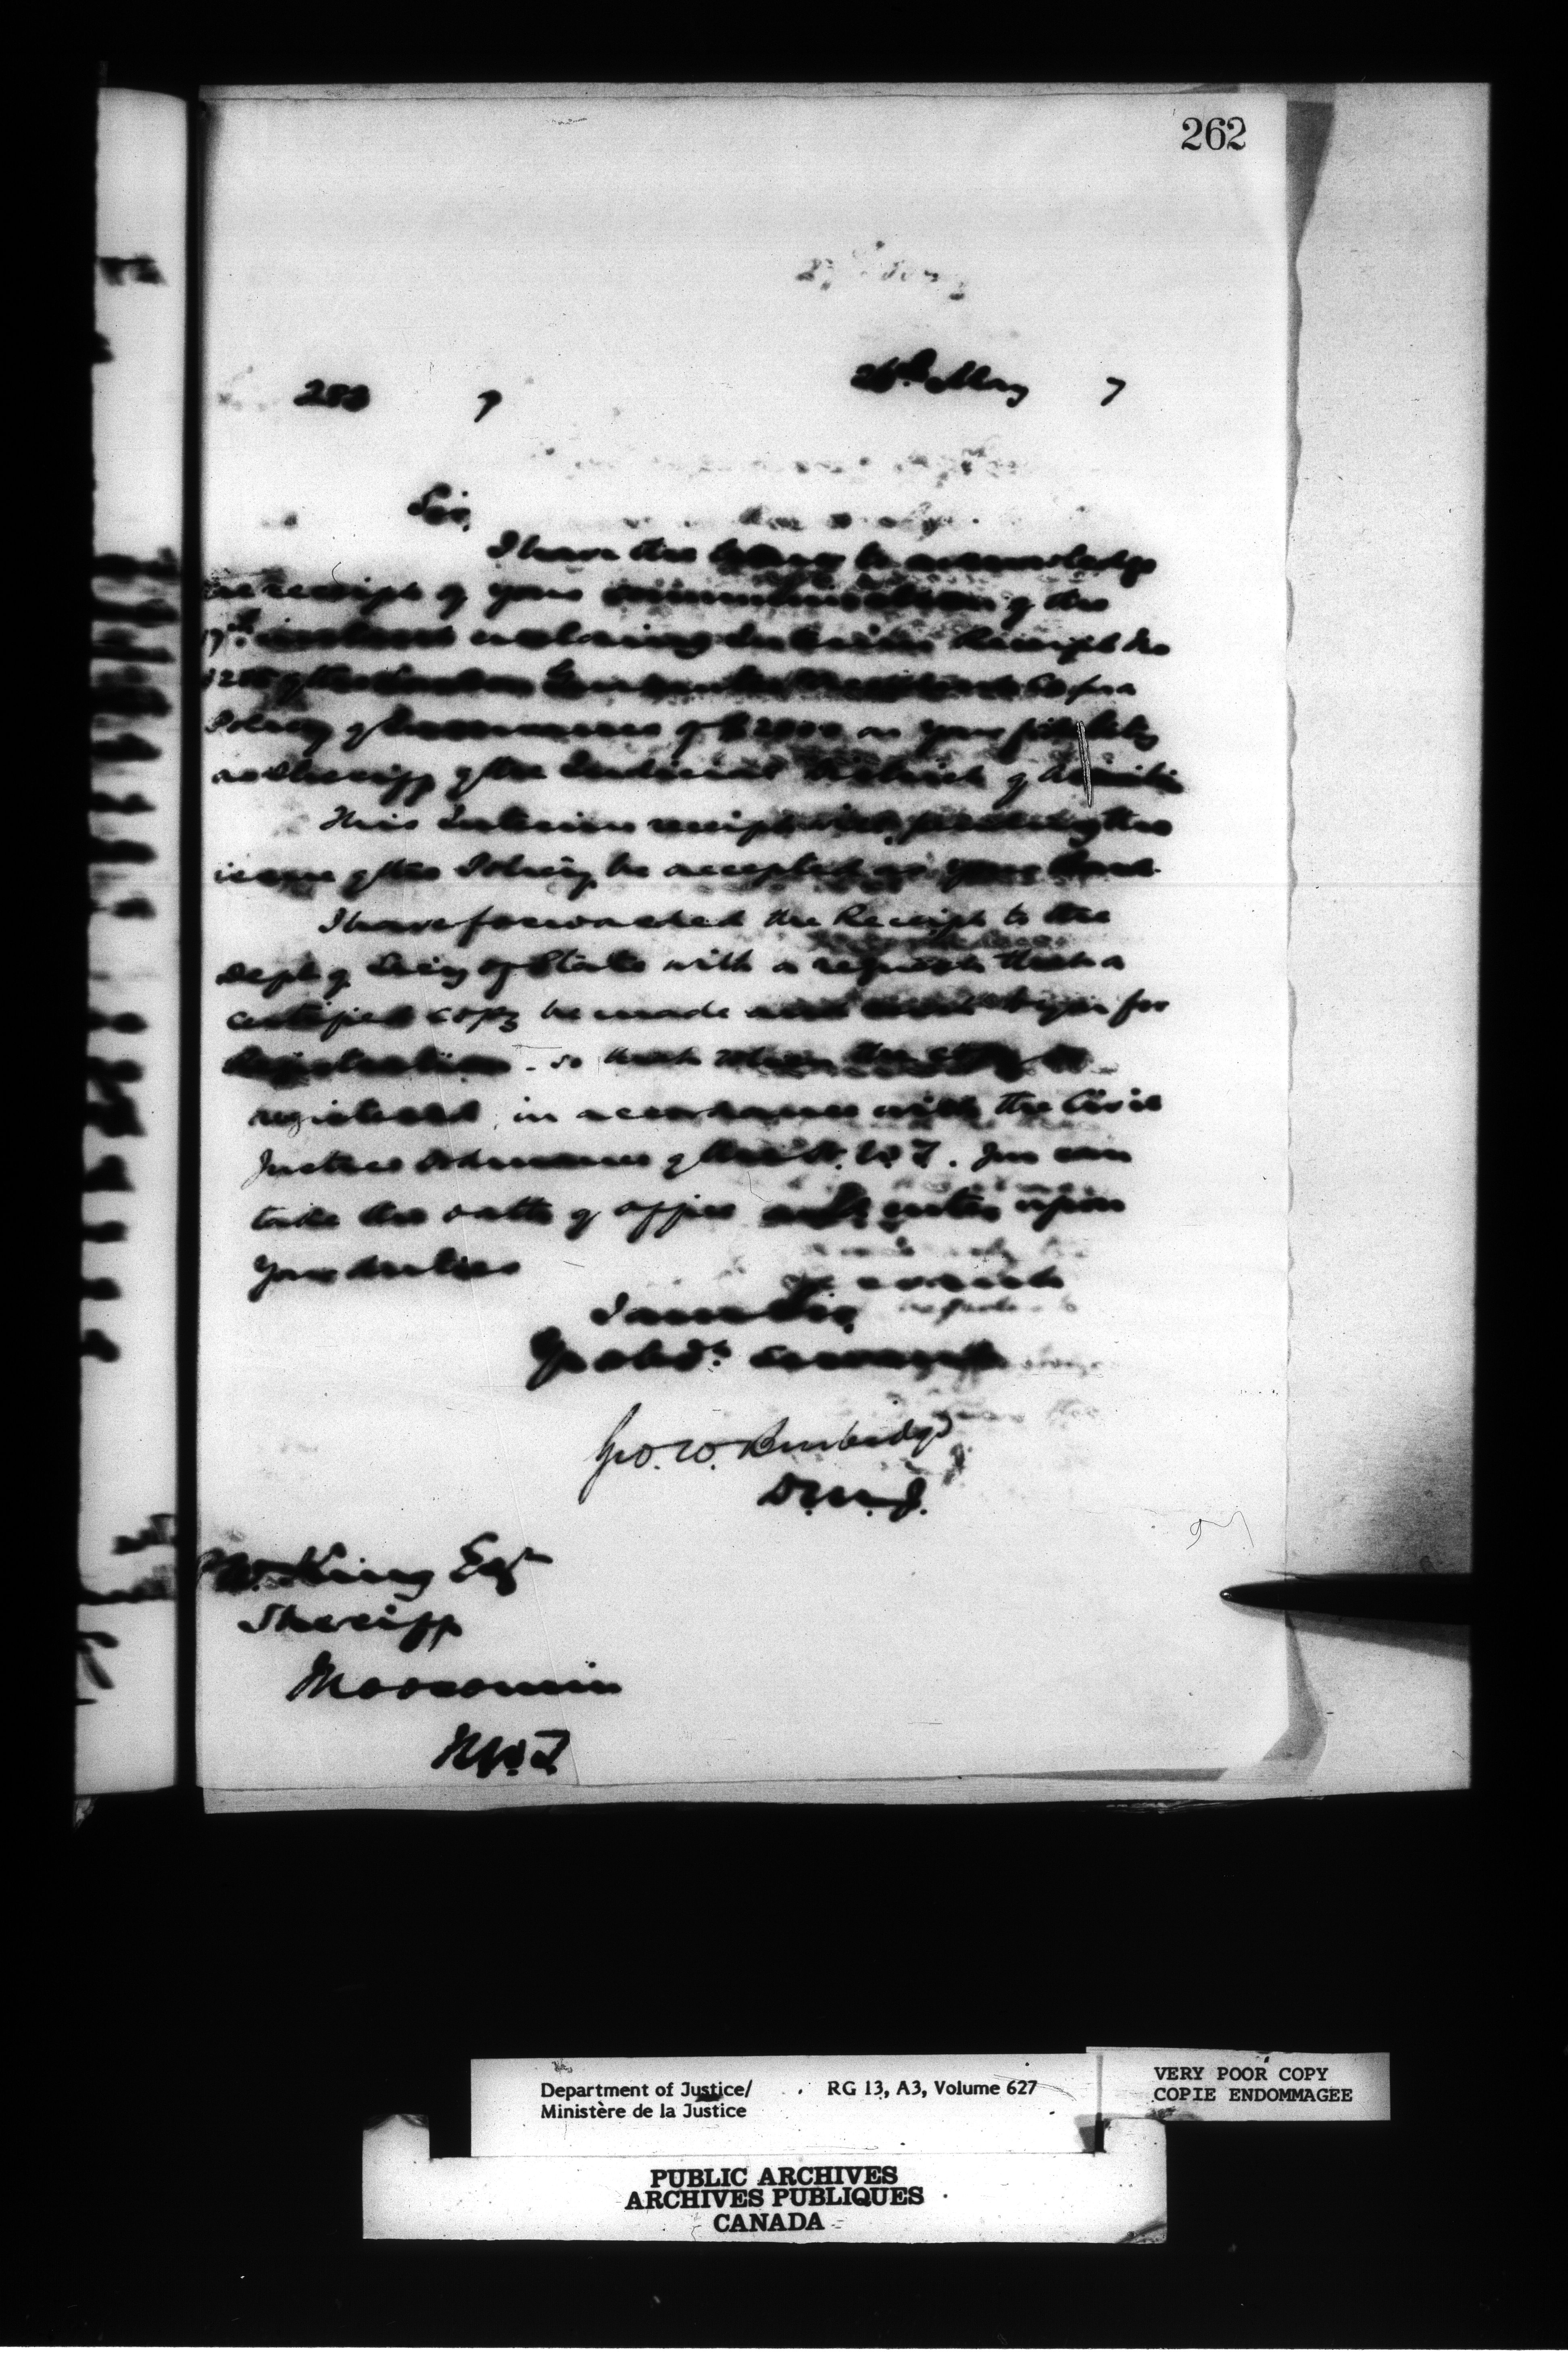 262
26th May 7
283 7
Sir,
I have the honor to acknowledge
the receipt of your communication of the
17th instant enclosing Interim Receipt No
of the London Guarantee & Accident Co for a
Policy of Insurance of $2000 on your fidelity
as Sheriff of the Judicial District of Assiniboia
This Interim receipt will, pending the
issue of the Policy, be accepted as your bond.
I have forwarded the Receipt to the
Dept of Secy of State with a request that a
certified copy be made and sent to you for
Registration - so that when the copy is
registered, in accordance with the Civil
Justice Ordinance of the N. W. T. you can
take the oath of office and enter upon
your duties
I am Sir,
Yr obdt. servant
Geo. W. Burbidge
D.M.J.
W. King Esqr
Sheriff
Moosomin
N.W.T
Department of Justice/
Ministère de la Justice
RG 13, A3, Volume 627
VERY POOR COPY
COPIE ENDOMMAGEE
PUBLIC ARCHIVES
ARCHIVES PUBLIQUES
CANADA